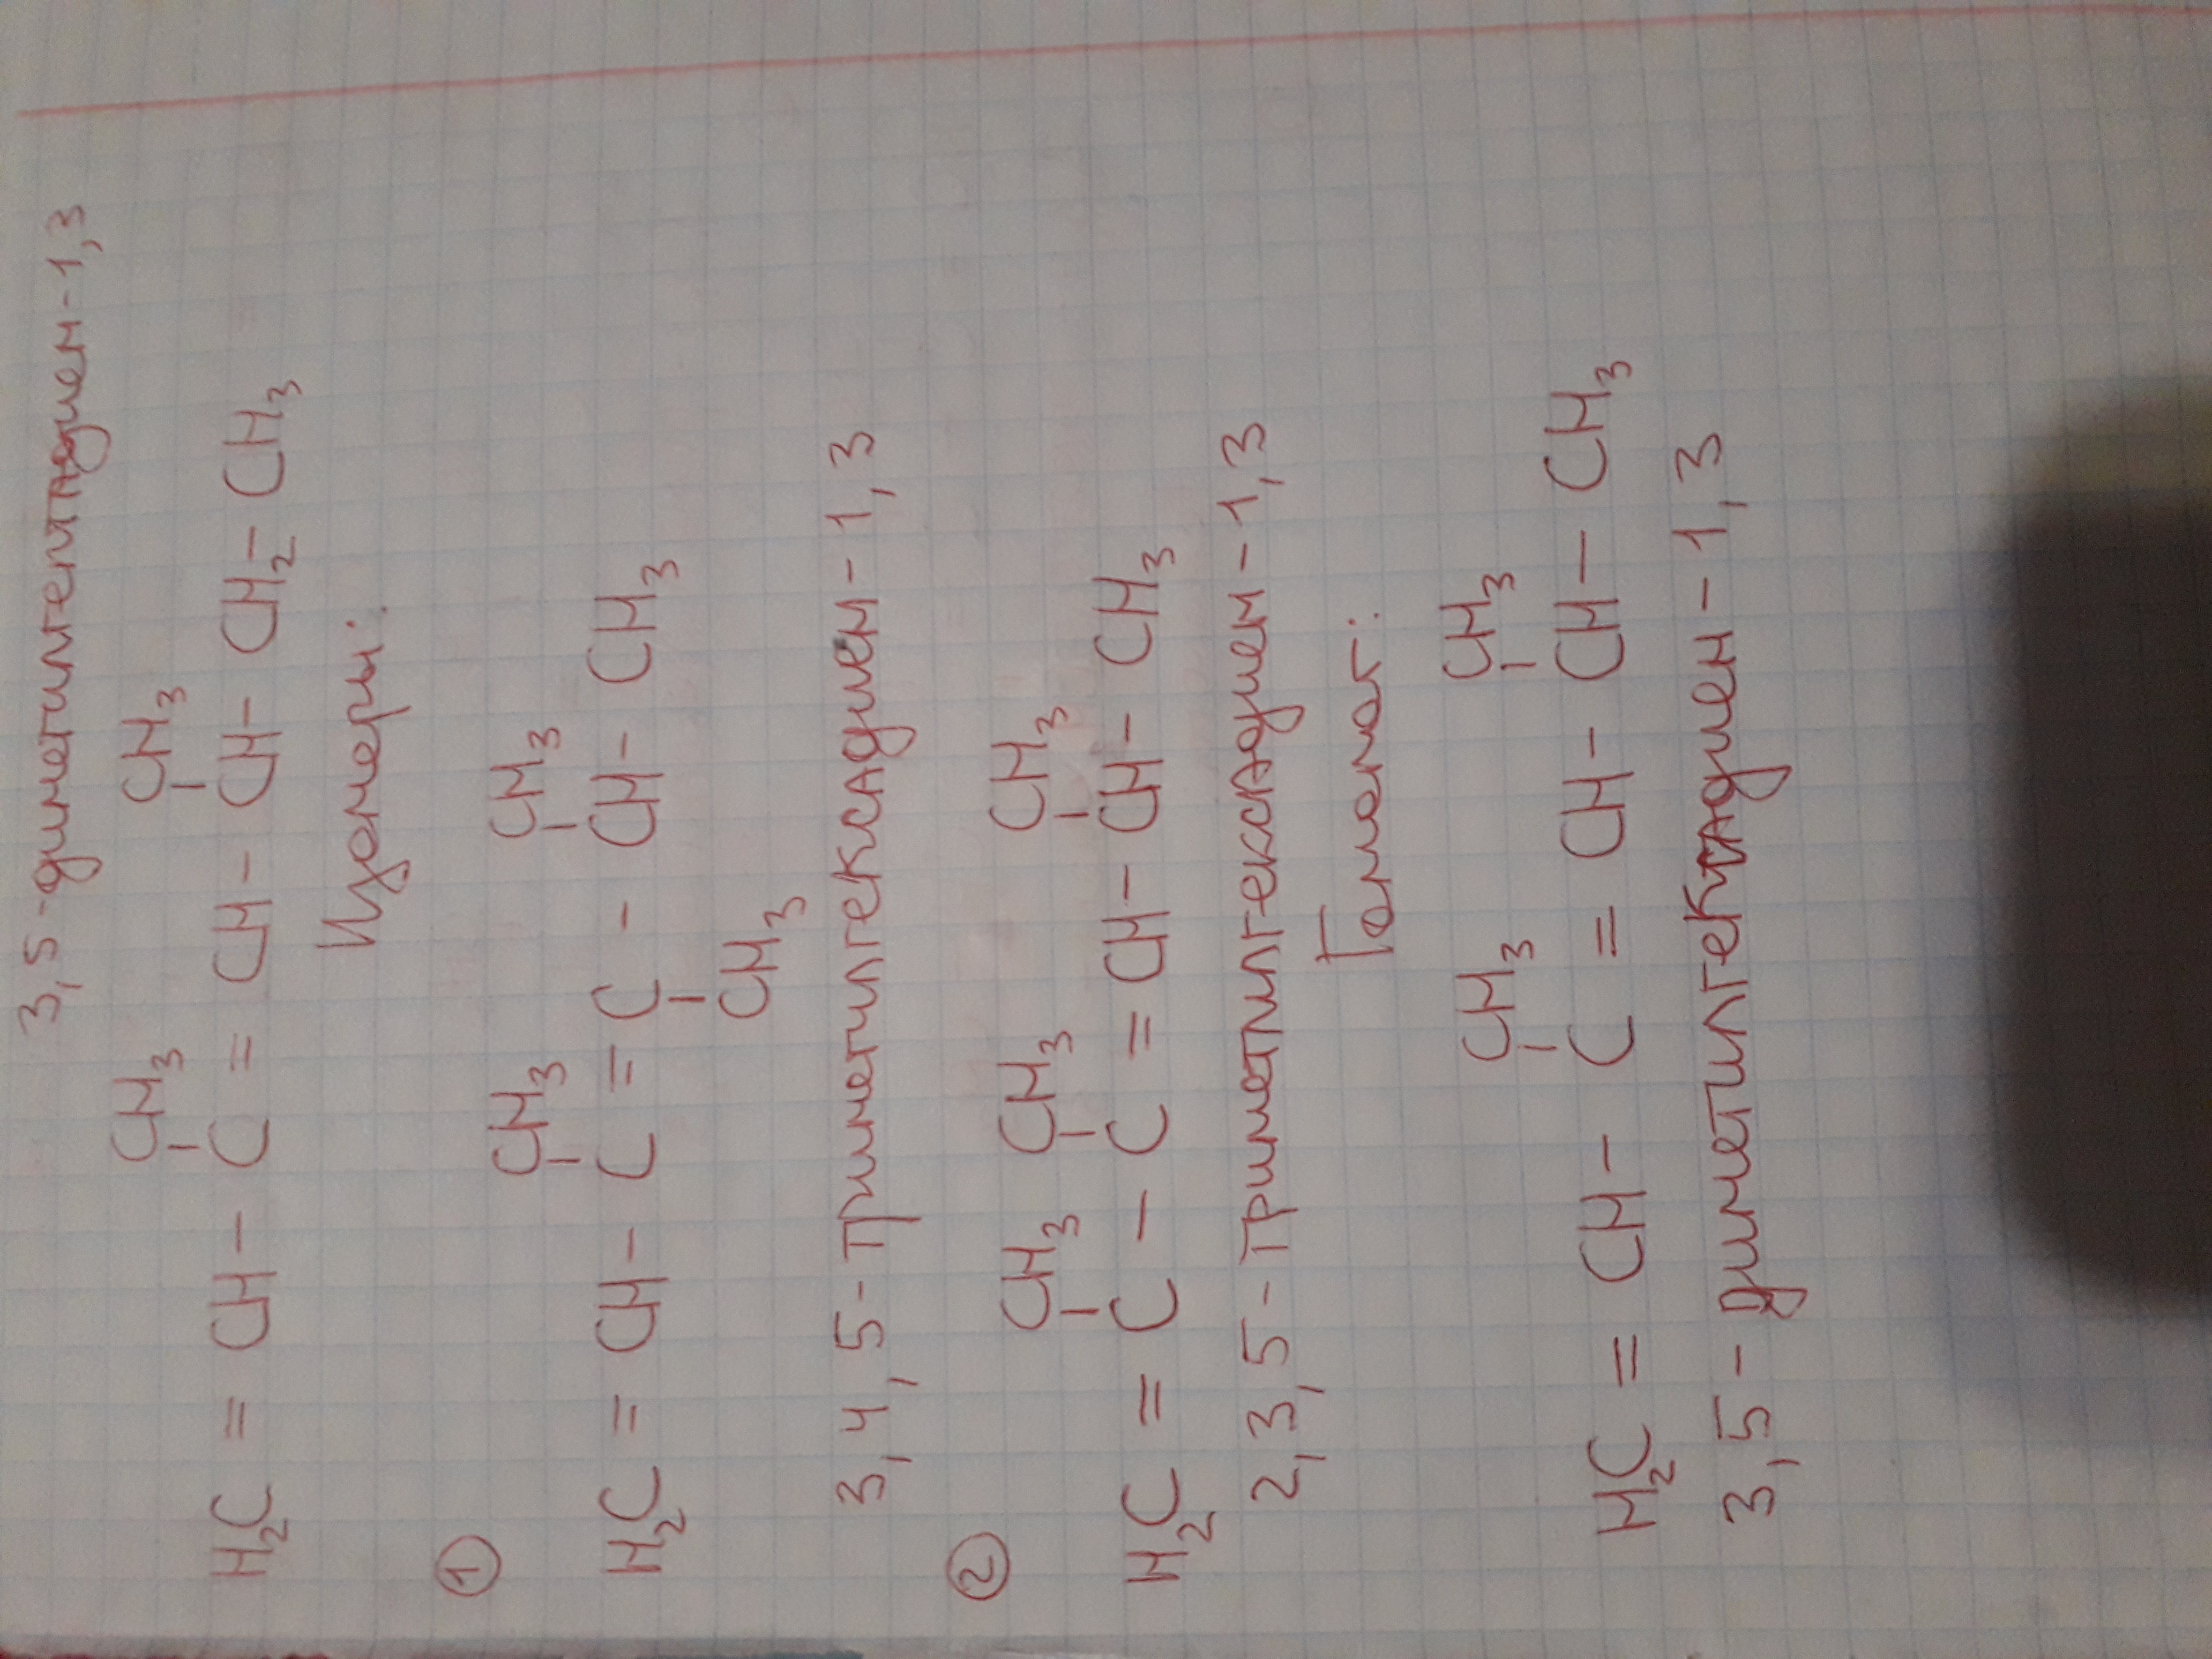 3,5-диметилгептадиен-1,3
CH3 CH3
H2C = CH - C = CH - CH - CH2 - CH3
Изомеры:
①
CH3 CH3
H2C = CH - C = C - CH - CH3
CH3
3,4,5-триметилгексадиен-1,3
②
CH3 CH3 CH3
H2C = C - C = CH - CH - CH3
2,3,5-триметилгексадиен-1,3
Гомолог:
CH3 CH3
H2C = CH - C = CH - CH - CH3